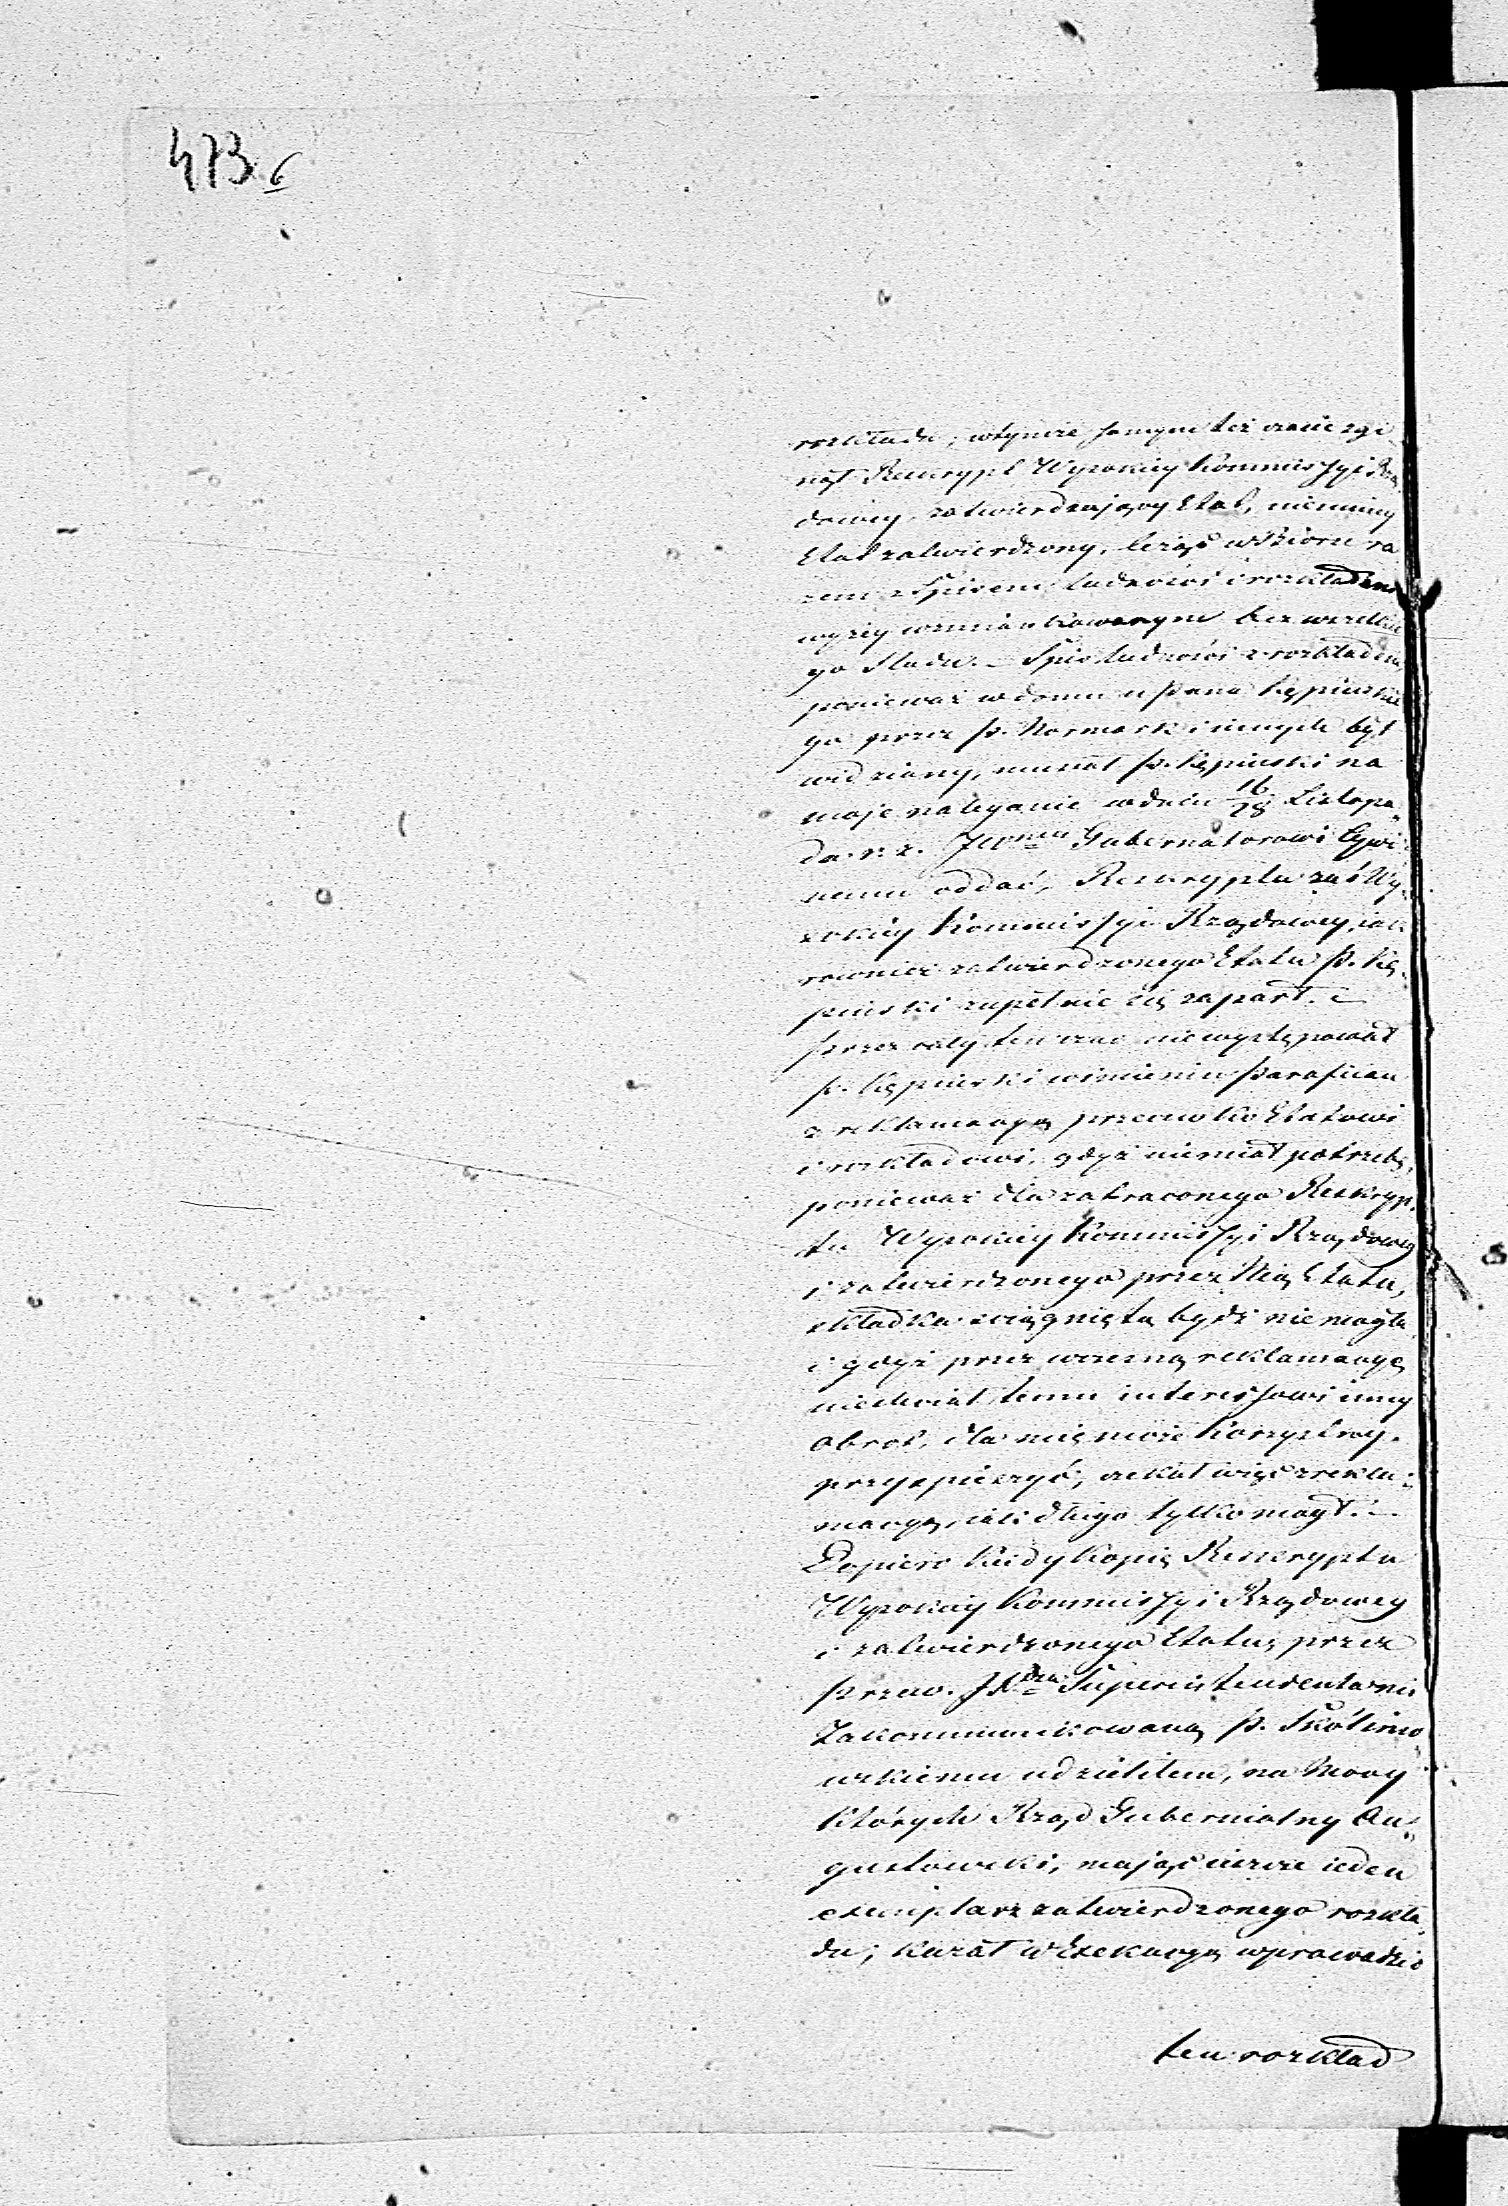 473 6
rozkładu; w tymże samym też czasie zgi-
nął Rescrypt Wysokiey Kommissyi Rzą-
dowey, zatwierdzaiący Etat, niemniey
Etat zatwierdzony, leżąc w Biorze ra
zem z Spisem ludności i rozkładem
wyżey wzmiankowanym bez wszelkie
go śladu. – Spis ludności z rozkładem
ponieważ w domu u Pana Kępińskie
go przez P. Normark i innych był
widziany, musiał P. Kępinski na
moje naleganie w dniu 16/28 Listopa-
da r. z. JWmu Gubernatorowi Cywil
nemu oddać, Rescryptu zaś Wy-
sokiey Kommissyi Rządowey, iak
rownież zatwierdzonego Etatu P. Kę-
pinski zupełnie się zaparł. –
Przez cały ten czas nie występował
P. Kępinski w imieniu Parafian
z reklamacyą przeciwko Etatowi
i rozkładowi, gdyż niemiał potrzeby,
ponieważ dla zatraconego Reskryp-
tu Wysokiey Kommissyi Rządowey
i zatwierdzonego przez Nią Etatu,
składka ściągnięta bydź niemogła
i gdyż przez wczesną reklamacyę
niechciał temu interessowi inny
obrot, dla mnie może korzystny.
przyspieszyć; czekał więc z rekla-
macyą, iak długo tylko mogł. –
Dopiero kiedy Kopię Rescryptu
Wysokiey Kommissyi Rządowey
i zatwierdzonego Etatu, przez
Przew. Superintendenta mi
Zakommunikowaną P. Skólimo-
wskiemu udzieliłem, na mocy
których Rząd Gubernialny Au-
gustowski, maiąc ieszcze ieden
exemplarz zatwierdzonego rozkła
du; kazał w Exekucyą wprowadzić
ten rozkład